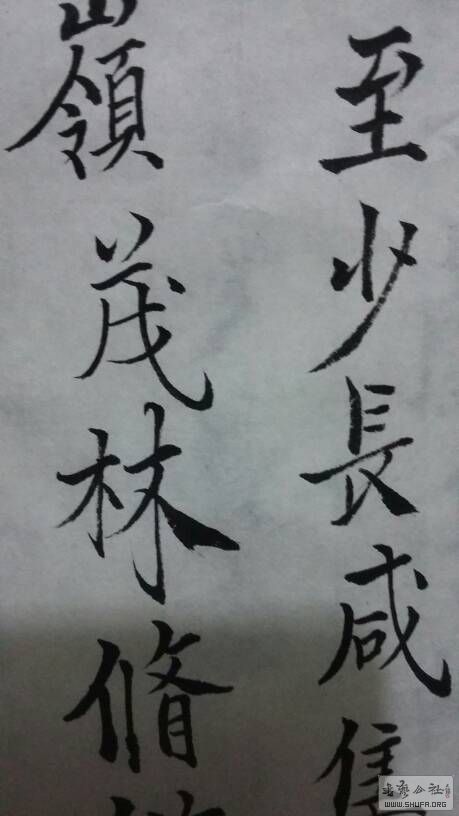 至少長咸集
嶺茂林脩
書藝公社
WWW.SHUFA.ORG